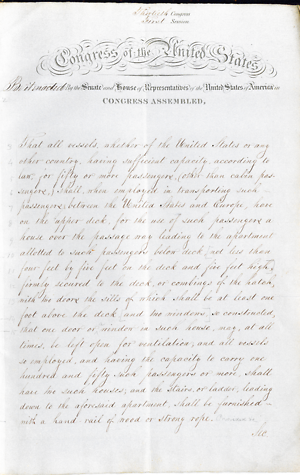 Thirtieth Congress
First Session
Congress of the United States.
Be it enacted by the Senate and House of Representatives of the United States of America in
CONGRESS ASSEMBLED,
That all vessels, whether of the United States or any
other country, having sufficient capacity according to
law, for fifty or more passengers, (other than cabin pas-
sengers,) shall, when employed in transporting such
passengers between the United States and Europe, have
on the upper deck, for the use of such passengers a
house over the passage way leading to the apartment
allotted to such passengers below deck, not less than
four feet by five feet on the deck and five feet high,
firmly secured to the deck, or combings of the hatch,
with two doors the sills of which shall be at least one
foot above the deck and two windows so constructed,
that one door or window in such house, may, at all
times, be left open for ventilation; and all vessels
so employed, and having the capacity to carry one
hundred and fifty such passengers or more, shall
have two such houses; and the stairs or ladder, leading
down to the aforesaid apartment, shall be furnished
with a hand rail of wood or strong rope.
Sec.